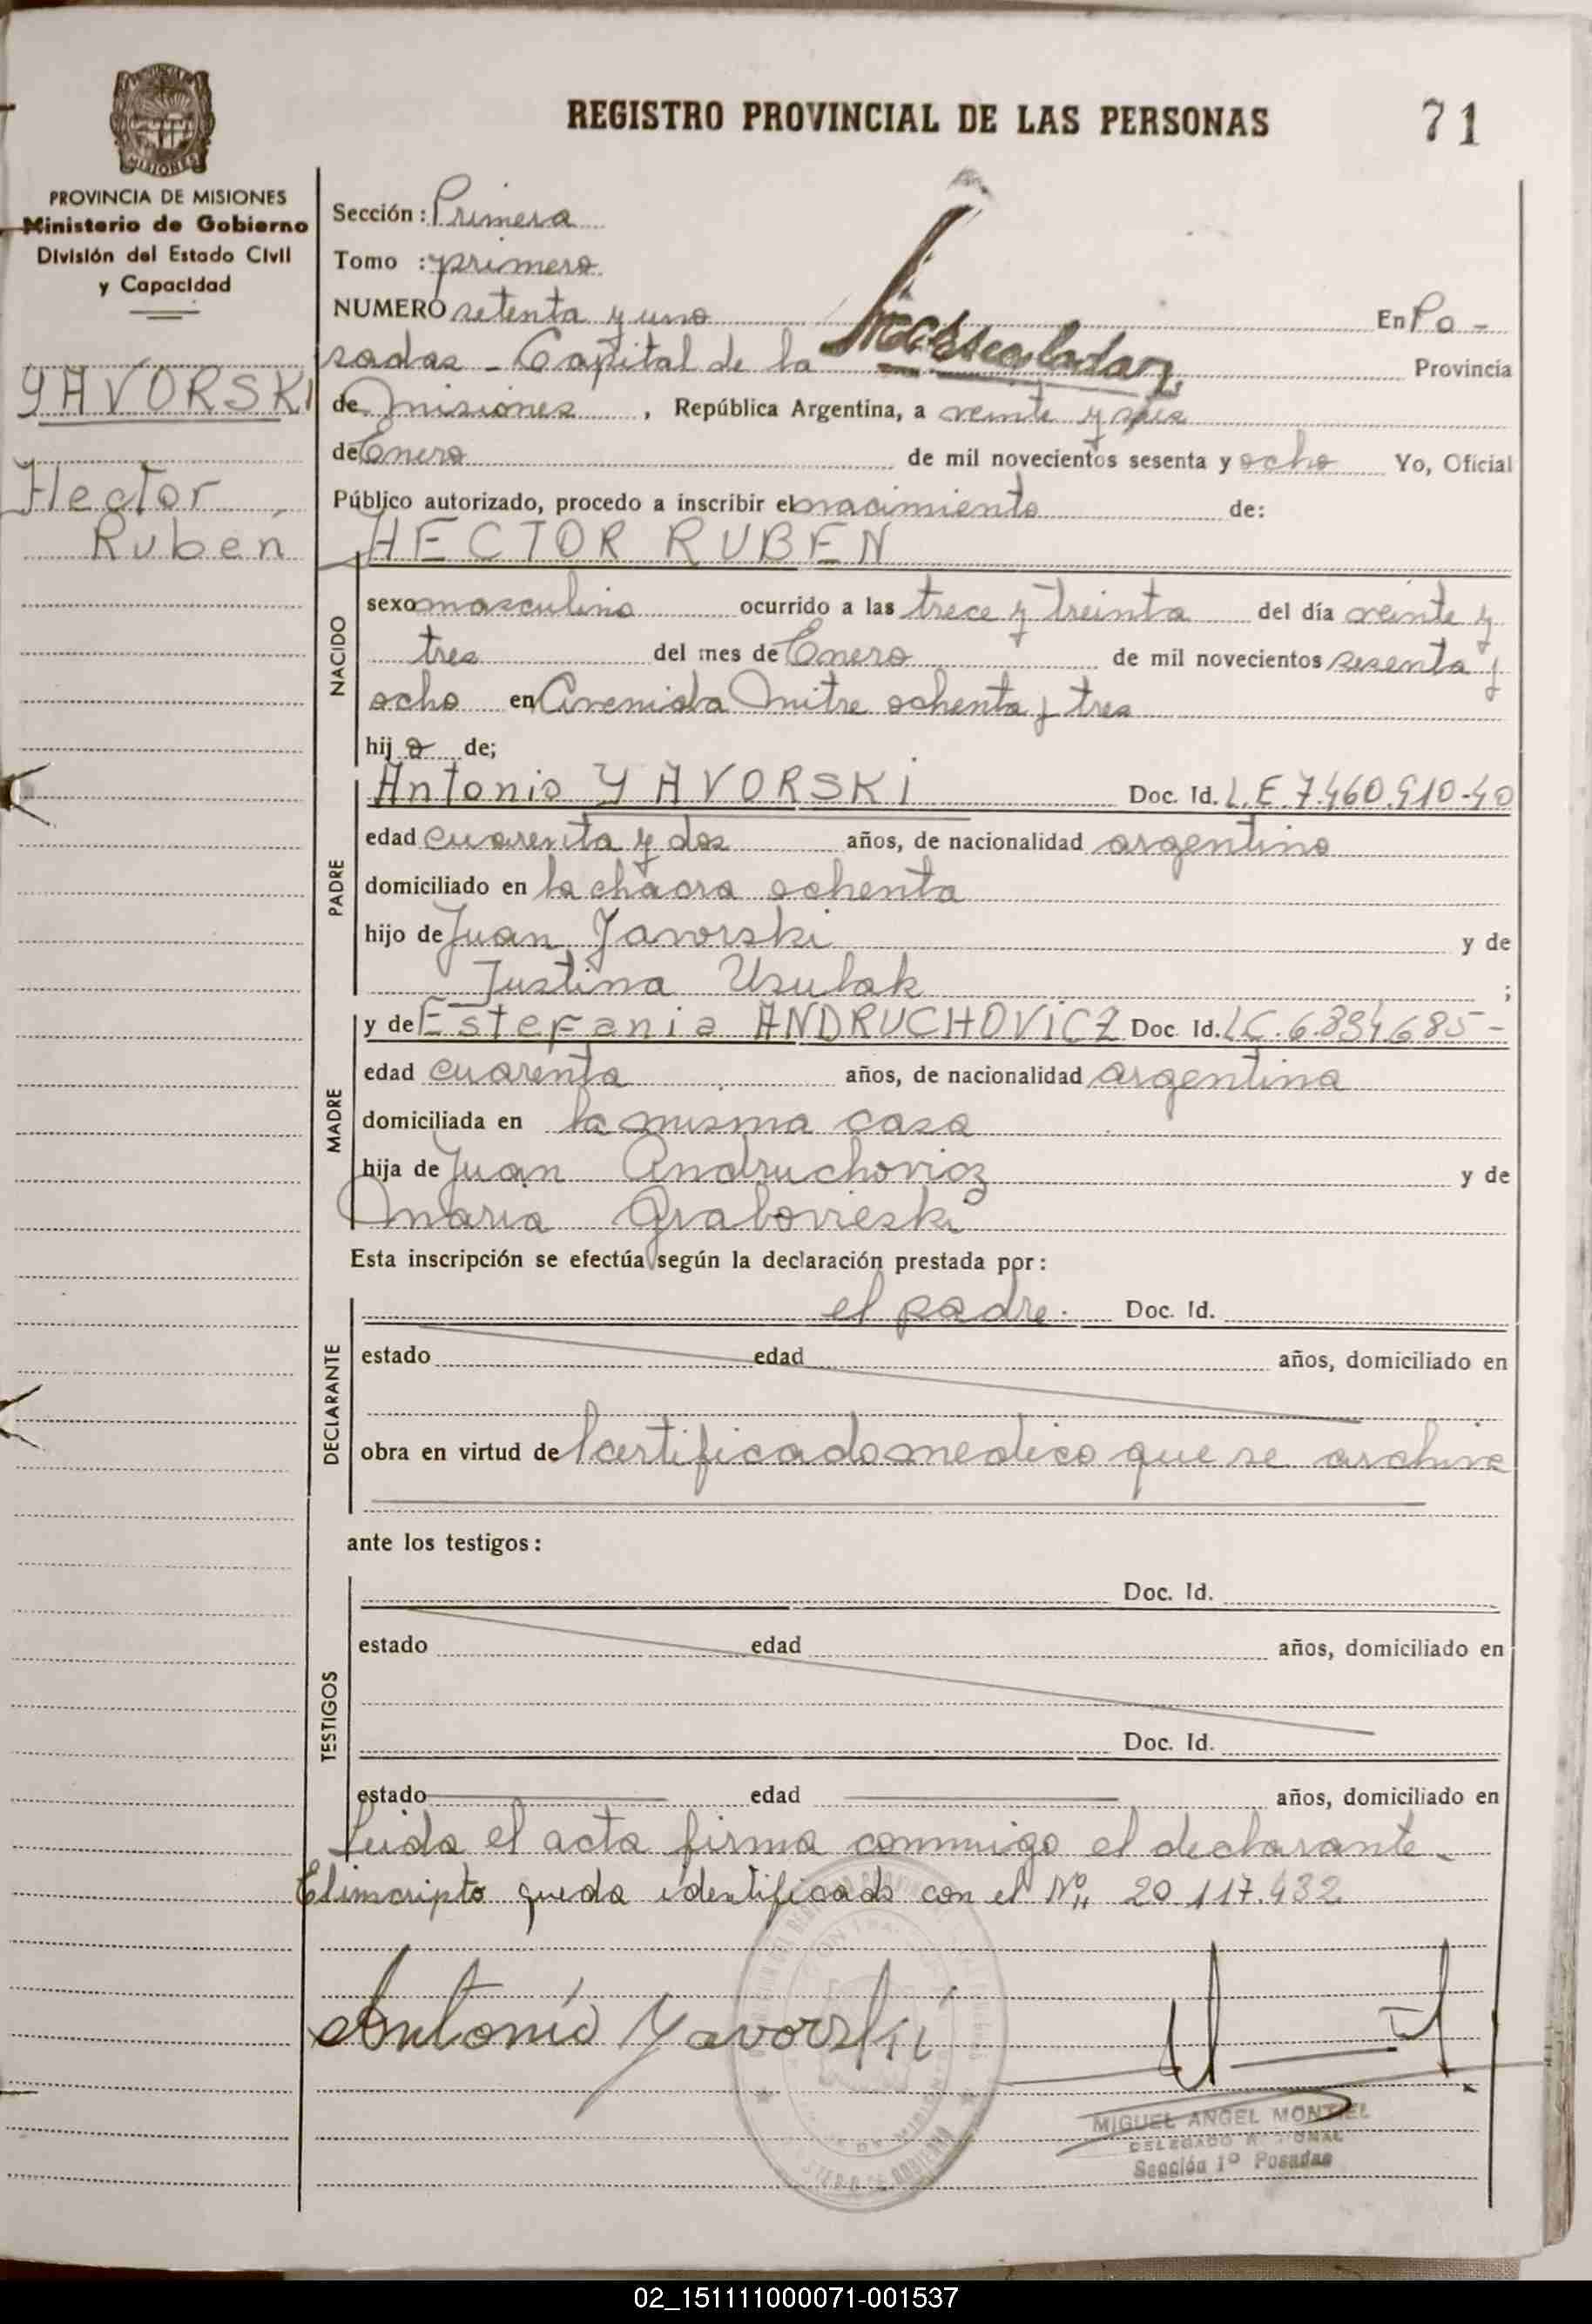 REGISTRO PROVINCIAL DE LAS PERSONAS
71
MISIONES
PROVINCIA DE MISIONES
Ministerio de Gobierno
División del Estado Civil
y Capacidad
YAVORSKI
Hector
Ruben
Sección: Primera
Tomo : primero
NUMERO setenta y uno En Po-
sadas - Capital de la Provincia
de Misiones, República Argentina, a veinte y seis
de Enero de mil novecientos sesenta y ocho Yo, Oficial
Público autorizado, procedo a inscribir el nacimiento de:
HECTOR RUBEN
NACIDO
sexo masculino ocurrido a las trece y treinta del día veinte y
tres del mes de Enero de mil novecientos sesenta y
ocho en Avenida Mitre ochenta y tres
hij o de;
PADRE
Antonio YAVORSKI Doc. Id. L.E. 7.460.910-40
edad cuarenta y dos años, de nacionalidad argentino
domiciliado en la chacra ochenta
hijo de Juan Javorski y de
Justina Usulak ;
MADRE
y de Estefania ANDRUCHOVICZ Doc. Id. L.C. 6.834.685-
edad cuarenta años, de nacionalidad argentina
domiciliada en la misma casa
hija de Juan Andruchovicz y de
Maria Grabovieski
Esta inscripción se efectúa según la declaración prestada por:
DECLARANTE
el padre. Doc. Id.
estado edad años, domiciliado en
obra en virtud del certificado medico que se archiva
ante los testigos:
TESTIGOS
Doc. Id.
estado edad años, domiciliado en
Doc. Id.
estado edad años, domiciliado en
Leida el acta firma conmigo el declarante-
El inscripto queda identificado con el Nº 20.117.432
Antonio Yavorski
MIGUEL ANGEL MONTIEL
DELEGADO
Sección 1º Posadas
02_151111000071-001537